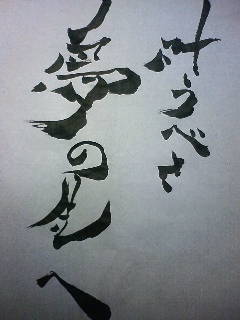 叶うべき
夢の先へ